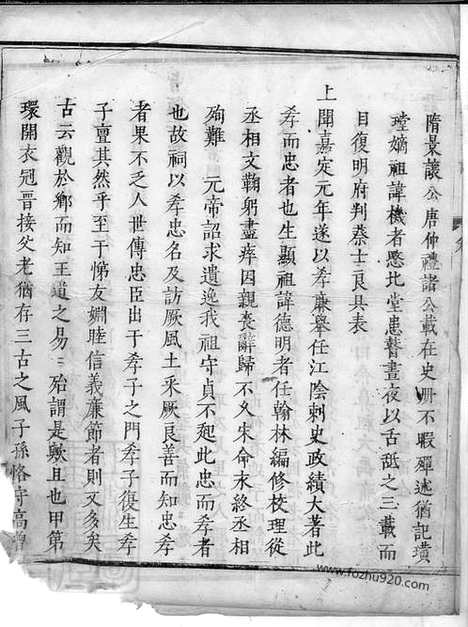 隋景讓公唐仲禮諸公載在史冊不暇殫述猶記璜
瑝嫡祖諱機者愍比堂患瞽晝夜以舌舐之三載而
目復明府判蔡士良具表
上聞嘉定元年遂以孝廉舉任江陰刺史政績大著此
孝而忠者也生顯祖諱德明者任翰林編修校理從
丞相文鞠躬盡瘁因親喪辭歸不乆朱命未終丞相
殉難 元帝詔求遺逸我祖守貞不起此忠而孝者
也故祠以孝忠名及訪厥風土采厥良善而知忠孝
者果不乏人世傳忠臣出于孝子之門孝子復生孝
子亶其然乎至于悌友婣睦信義廉節者則又多矣
古云觀於鄉而知王道之易二殆謂是歟且也甲第
環開衣冠晋接父老猶存三古之風子孫恪守高曾
www.fozhu920.com